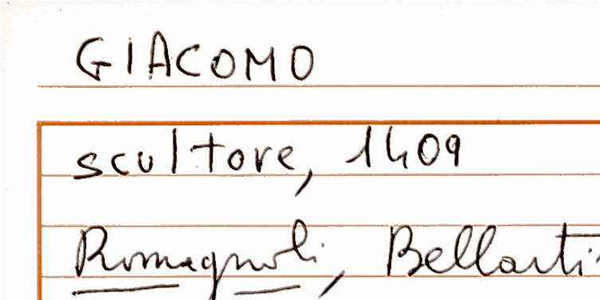 GIACOMO
scultore, 1409
Romagnoli, Bellarti